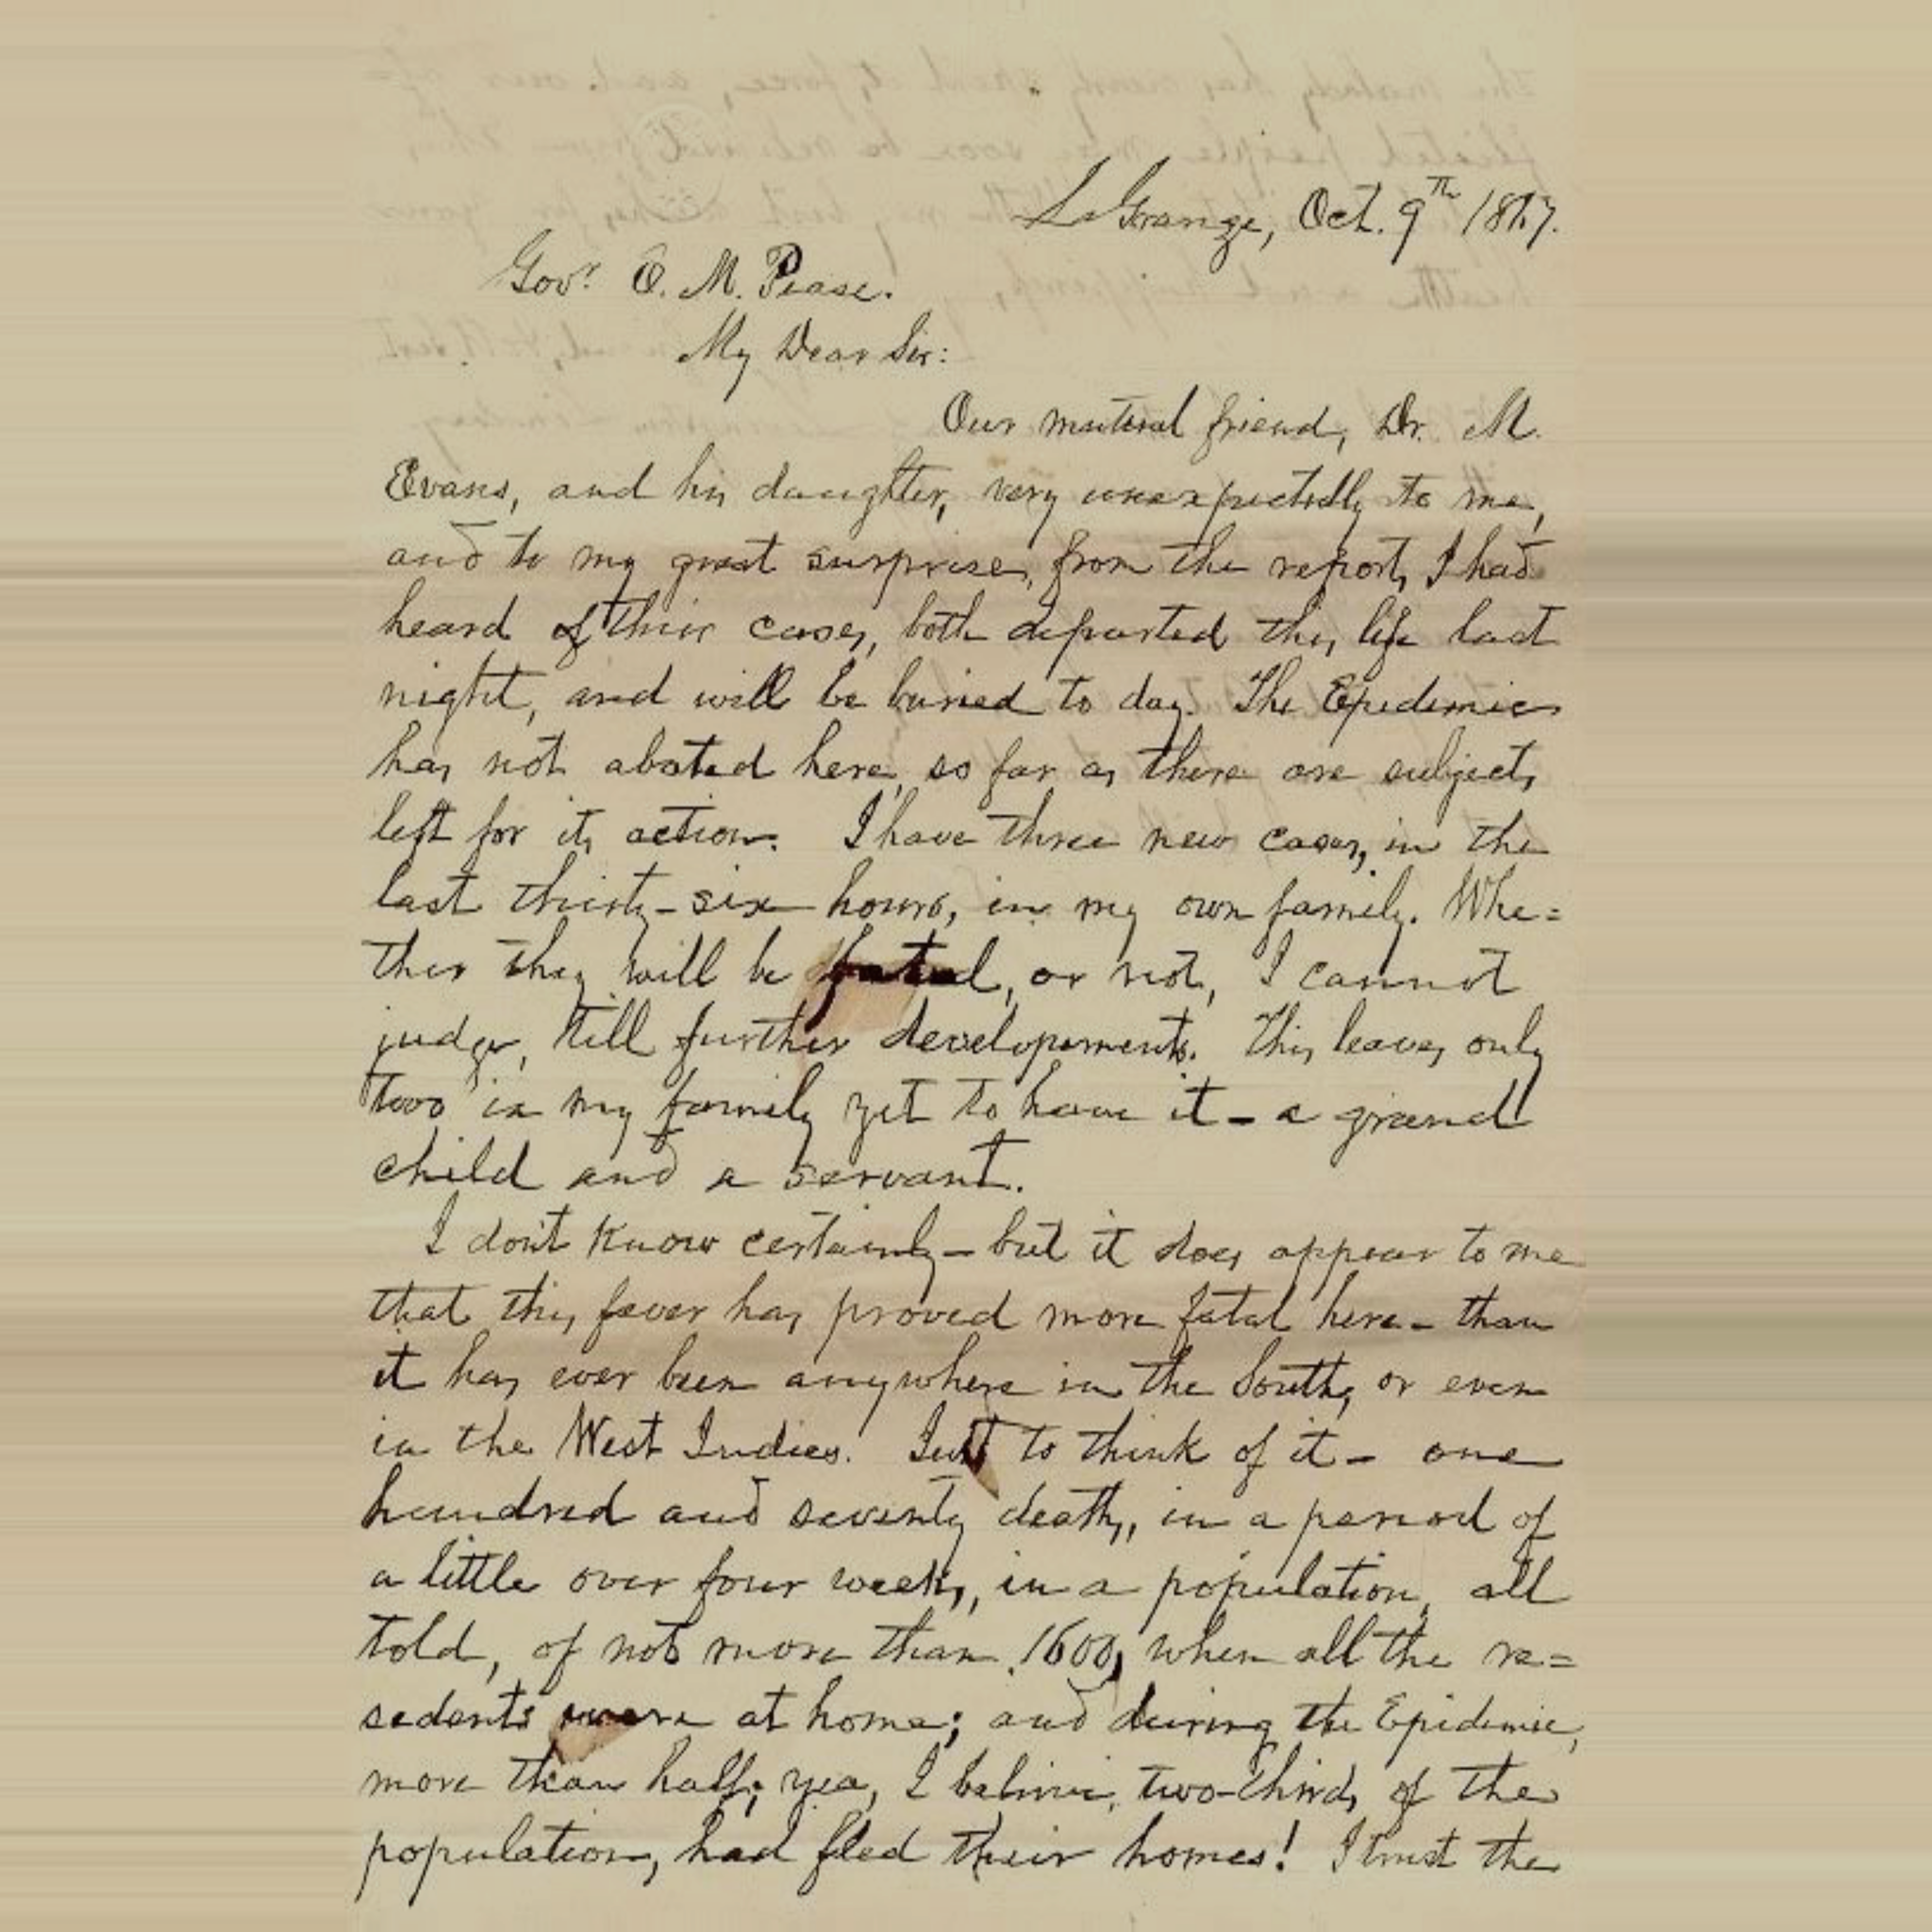 La Grange, Oct. 9th 1867.
Gov.r E. M. Pease.
My Dear Sir:
Our mutual friend, Dr. M.
Evans, and his daughter, very unexpectedly to me,
and to my great surprise, from the reports I had
heard of their cases, both departed this life last
night, and will be buried to day. The Epidemic
has not abated here, so far as there are subjects
left for its action. I have three new cases, in the
last thirty-six hours, in my own family. Whe=
ther they will be fatal, or not, I cannot
judge, till further developements. This leaves only
two in my family yet to have it - a grand
child and a servant.
I don't know certainly - but it does appear to me
that this fever has proved more fatal here - than
it has ever been anywhere in the South, or even
in the West Indies. Just to think of it - one
hundred and seventy deaths, in a period of
a little over four weeks, in a population, all
told, of not more than 1600, when all the re=
sedents were at home; and during the Epidemic,
more than half; yea, I believe, two-thirds of the
population, had fled their homes! I trust the